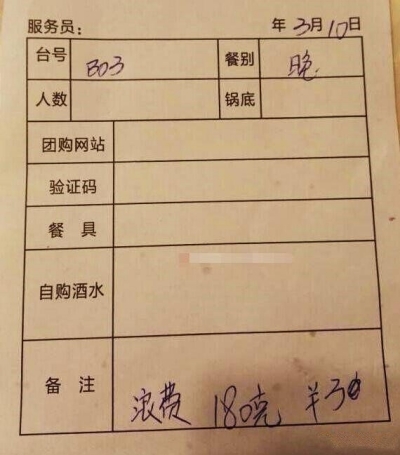 服务员： 年 3月10日
台号 B03 餐别 晚
人数 锅底
团购网站
验证码
餐具
自购酒水
备注 浪费 180克 ¥30